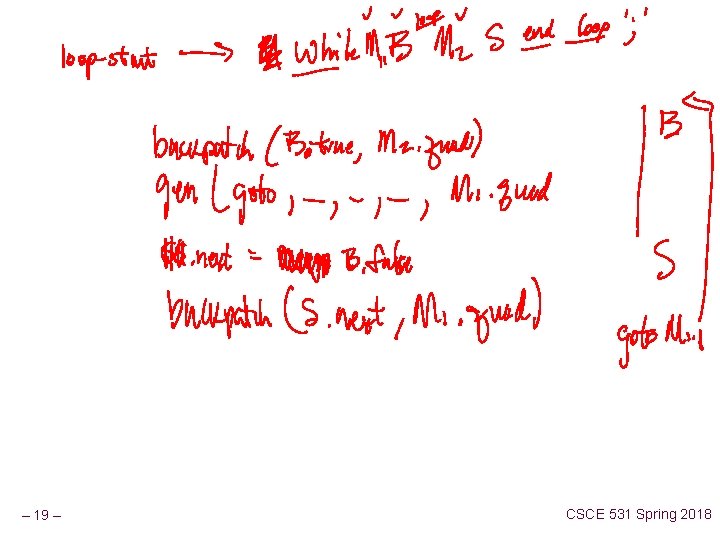 loop
loop-stmt → while M₁ B M₂ S end loop ';'
B
backpatch (B.true, M₂.quad)
gen (goto, _, _, _, M₁.quad
.next = B.false
S
backpatch (S.next, M₁.quad)
goto M₁.
– 19 –
CSCE 531 Spring 2018